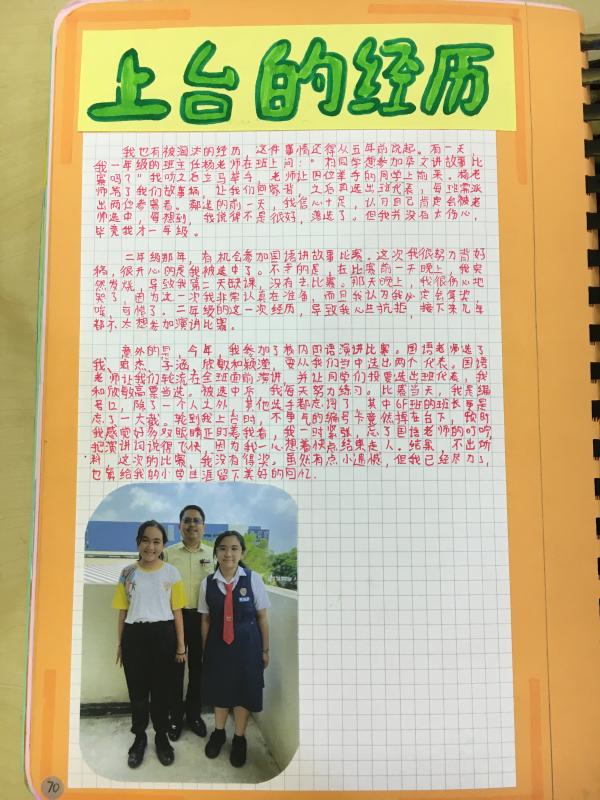 上台的经历
我也有被淘汰的经历，这件事情还得从五年前说起。有一天，
我一年级的班主任杨老师在班上问："有同学想参加华文讲故事比
赛吗？"我听了后立马举手，老师让四位举手的同学上前来。杨老
师写了我们故事稿，让我们回家背，之后再选出班代表，每班需派
出两位参赛者。都选的前一天，我信心十足，认为自己肯定会被老
师选中，每想到，我说得不是很好，落选了。但我并没有太伤心，
毕竟我才一年级。
二年级那年，有机会参加国语讲故事比赛。这次我很努力背好
稿，很开心的是我被选中了。不幸的是，在比赛前一天晚上，我突
然发烧，导致我第二天缺课，没有去比赛。那天晚上，我很伤心地
哭了，因为这一次我非常认真在准备，而且我认为我必定会得奖，
唉，可惜了。二年级的这一次经历，导致我心生抗拒，接下来几年
都不太想参加演讲比赛。
意外的是，今年，我参加了校内国语演讲比赛。国语老师选了
我、君杰、子涵、欣敏和颖滢，要从我们当中选出两个代表。国语
老师让我们轮流在全班面前演讲，并让同学们投票选出班代表，我
和欣敏高票当选。被选中后，我每天努力练习。比赛当天，我是编
号口，除了一个人之外，其他选手都忘词了，其中6F班的班长更是
忘了一大截。轮到我上台时，不争气的编号卡竟然掉在台下，顿时
我感觉好多双眼睛正盯着我看，我一时紧张，忘了国语老师的叮咛，
把演讲词说得飞快，因为我一心想着快点结束走人。结果，不出所
料，这次的比赛，我没有得奖。虽然有点小遗憾，但我已经尽力了，
也算给我的小学生涯留下美好的回忆.
70